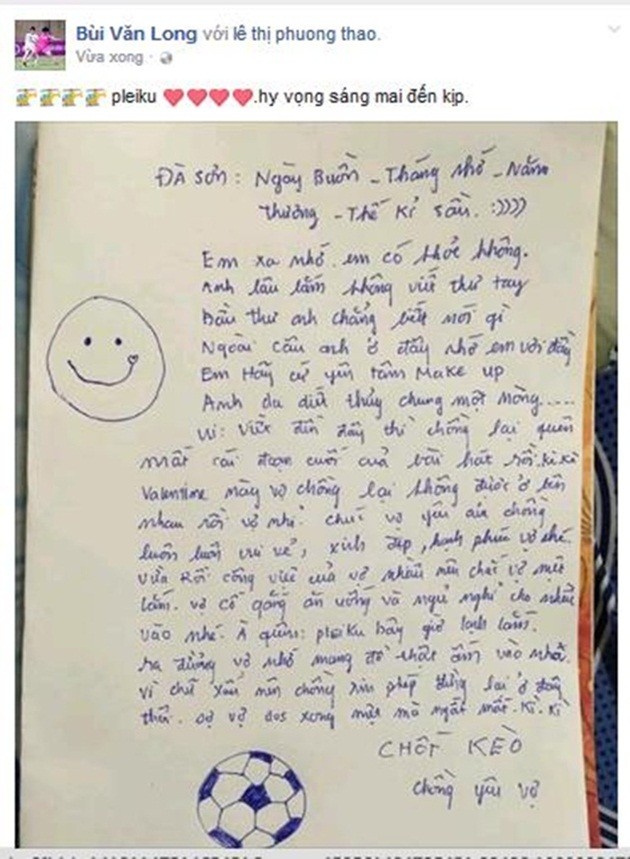 Bùi Văn Long với lê thị phuong thao.
Vừa xong
pleiku .hy vọng sáng mai đến kịp.
ĐÀ SƠN: NGÀY BUỒN - THÁNG NHỚ - NĂM
thương - THẾ Kỉ SẦU. :))))
Em xa nhớ. em có khỏe không.
Anh lâu lắm không viết thư tay
Đầu thư anh chẳng biết nói gì
Ngoài câu anh ở đây nhớ em với đầy
Em Hãy cứ yên tâm Make up
Anh da diết thủy chung một lòng.....
Vì: viết đến đây thì chồng lại quên
mất cái đoạn cuối của bài hát rồi. kì kì
Valentine này vợ chồng lại không được ở bên
nhau rồi vợ nhỉ. chúc vợ yêu của chồng
luôn luôn vui vẻ, xinh đẹp, hạnh phúc vợ nhé.
vừa Rồi công việc của vợ nhiều nên chắc vợ mệt
lắm. vợ cố gắng ăn uống và ngủ nghỉ cho nhiều
vào nhé. À quên: pleiku bây giờ lạnh lắm.
ra đường vợ nhớ mang đồ thật ấm vào nhé.
vì chữ xấu nên chồng xin phép dừng lại ở đây
thôi. sợ vợ đọc xong mệt mà ngất mất. Kì. Kì
CHỐT KÈO
chồng yêu vợ